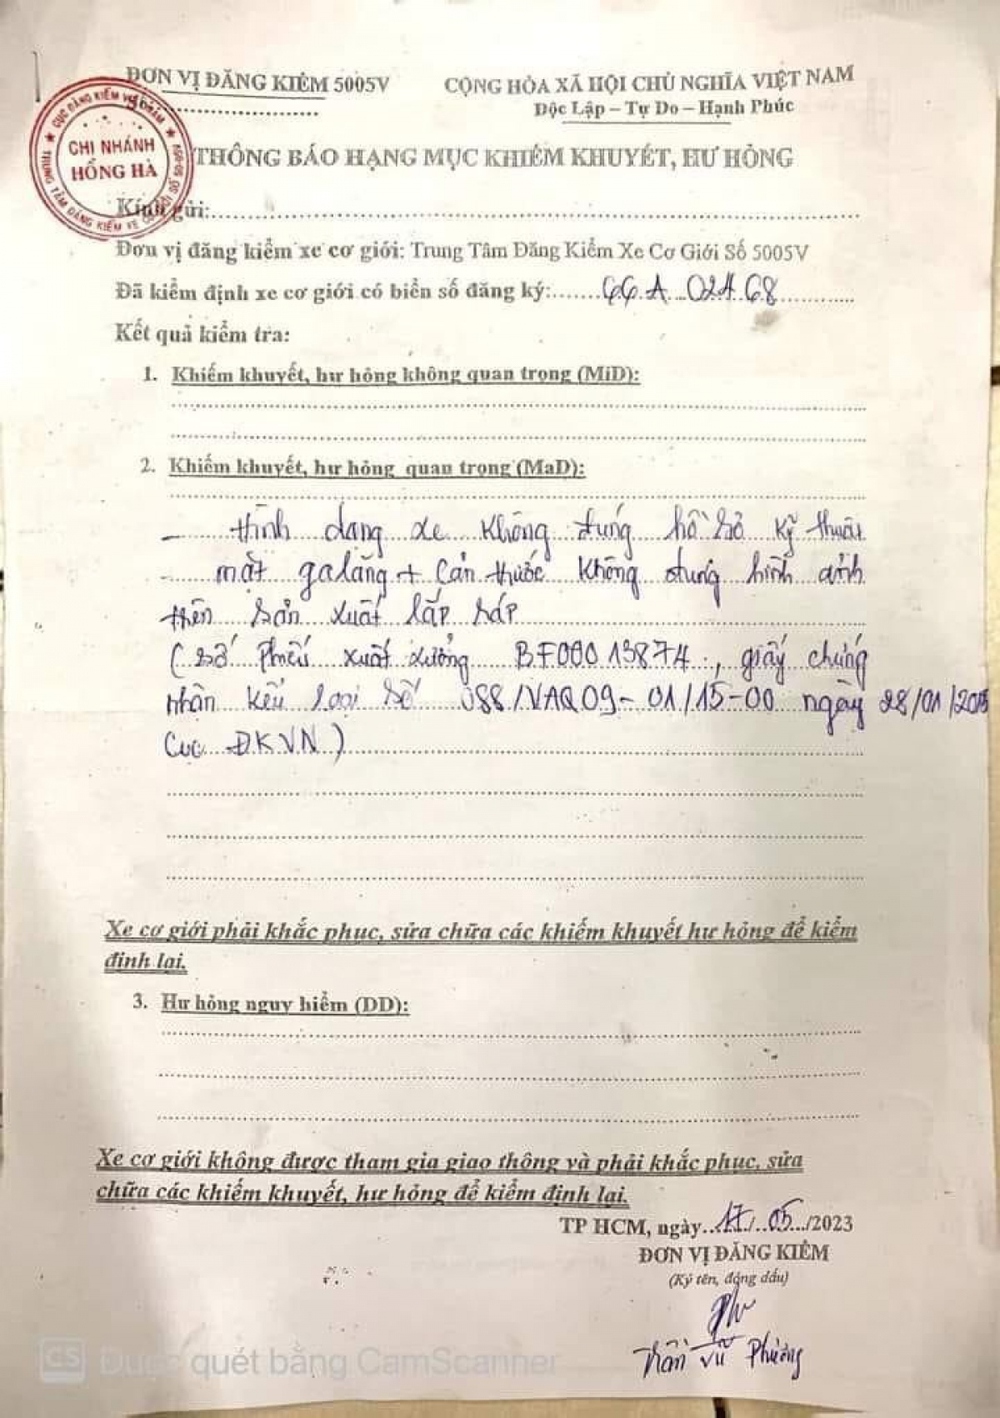 ĐƠN VỊ ĐĂNG KIỂM 5005V
CỘNG HÒA XÃ HỘI CHỦ NGHĨA VIỆT NAM
Độc Lập – Tự Do – Hạnh Phúc
CỤC ĐĂNG KIỂM VIỆT NAM
CHI NHÁNH
HỒNG HÀ
TRUNG TÂM ĐĂNG KIỂM XE CƠ GIỚI SỐ 50-05V
THÔNG BÁO HẠNG MỤC KHIẾM KHUYẾT, HƯ HỎNG
Kính gửi:
Đơn vị đăng kiểm xe cơ giới: Trung Tâm Đăng Kiểm Xe Cơ Giới Số 5005V
Đã kiểm định xe cơ giới có biển số đăng ký: 66A 02468
Kết quả kiểm tra:
1. Khiếm khuyết, hư hỏng không quan trọng (MiD):
2. Khiếm khuyết, hư hỏng quan trọng (MaD):
– Hình dạng xe không đúng hồ sơ kỹ thuật
mặt galăng + Cản trước không đúng hình ảnh
trên sản xuất lắp ráp
(Số phiếu xuất xưởng BF00013874, giấy chứng
nhận kiểu loại số 088/VAQ09-01/15-00 ngày 28/01/2015
Cục ĐKVN)
Xe cơ giới phải khắc phục, sửa chữa các khiếm khuyết hư hỏng để kiểm
định lại.
3. Hư hỏng nguy hiểm (DD):
Xe cơ giới không được tham gia giao thông và phải khắc phục, sửa
chữa các khiếm khuyết, hư hỏng để kiểm định lại.
TP HCM, ngày 17/05/2023
ĐƠN VỊ ĐĂNG KIỂM
(Ký tên, đóng dấu)
Trần Vũ Phương
CS Được quét bằng CamScanner